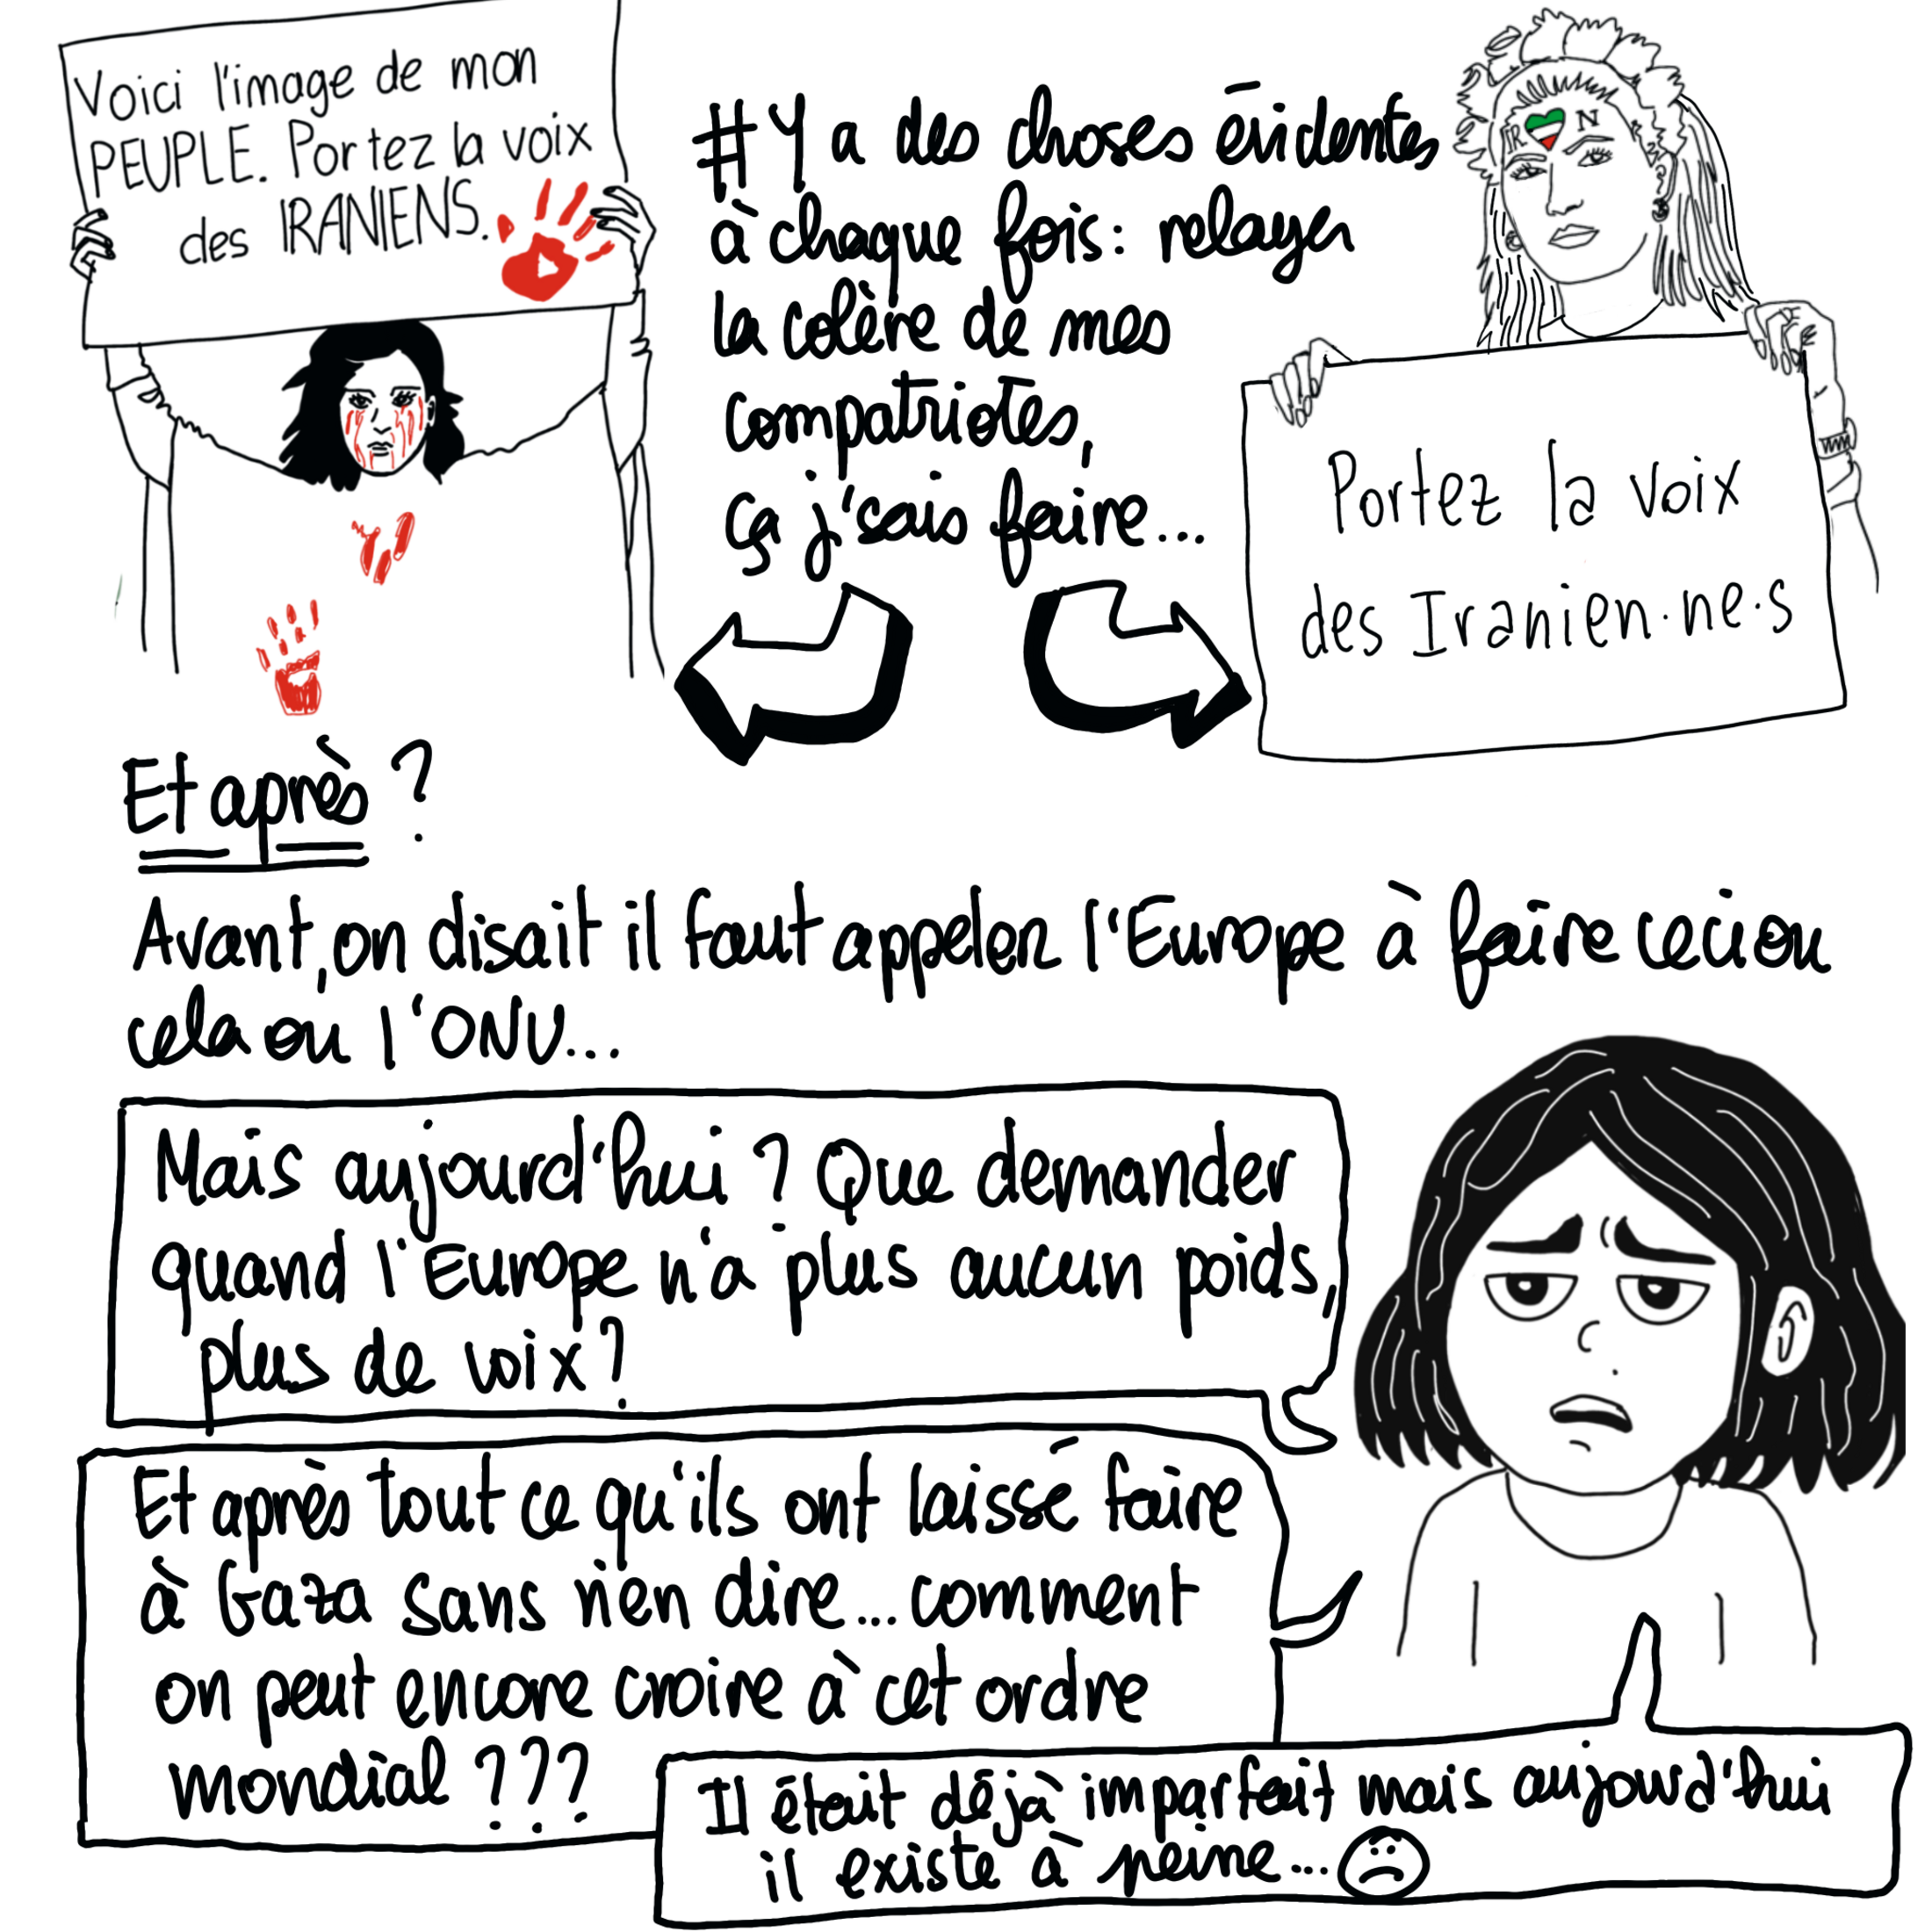 Voici l'image de mon
PEUPLE. Portez la voix
des IRANIENS.
# Y a des choses évidentes
à chaque fois: relayer
la colère de mes
compatriotes,
ça j'sais faire...
IR N
Portez la voix
des Iranien·ne·s
Et après ?
Avant, on disait il faut appeler l'Europe à faire ceci ou
cela ou l'ONU...
Mais aujourd'hui ? Que demander
quand l'Europe n'a plus aucun poids,
plus de voix ?
Et après tout ce qu'ils ont laissé faire
à Gaza sans rien dire... comment
on peut encore croire à cet ordre
mondial ???
Il était déjà imparfait mais aujourd'hui
il existe à peine...